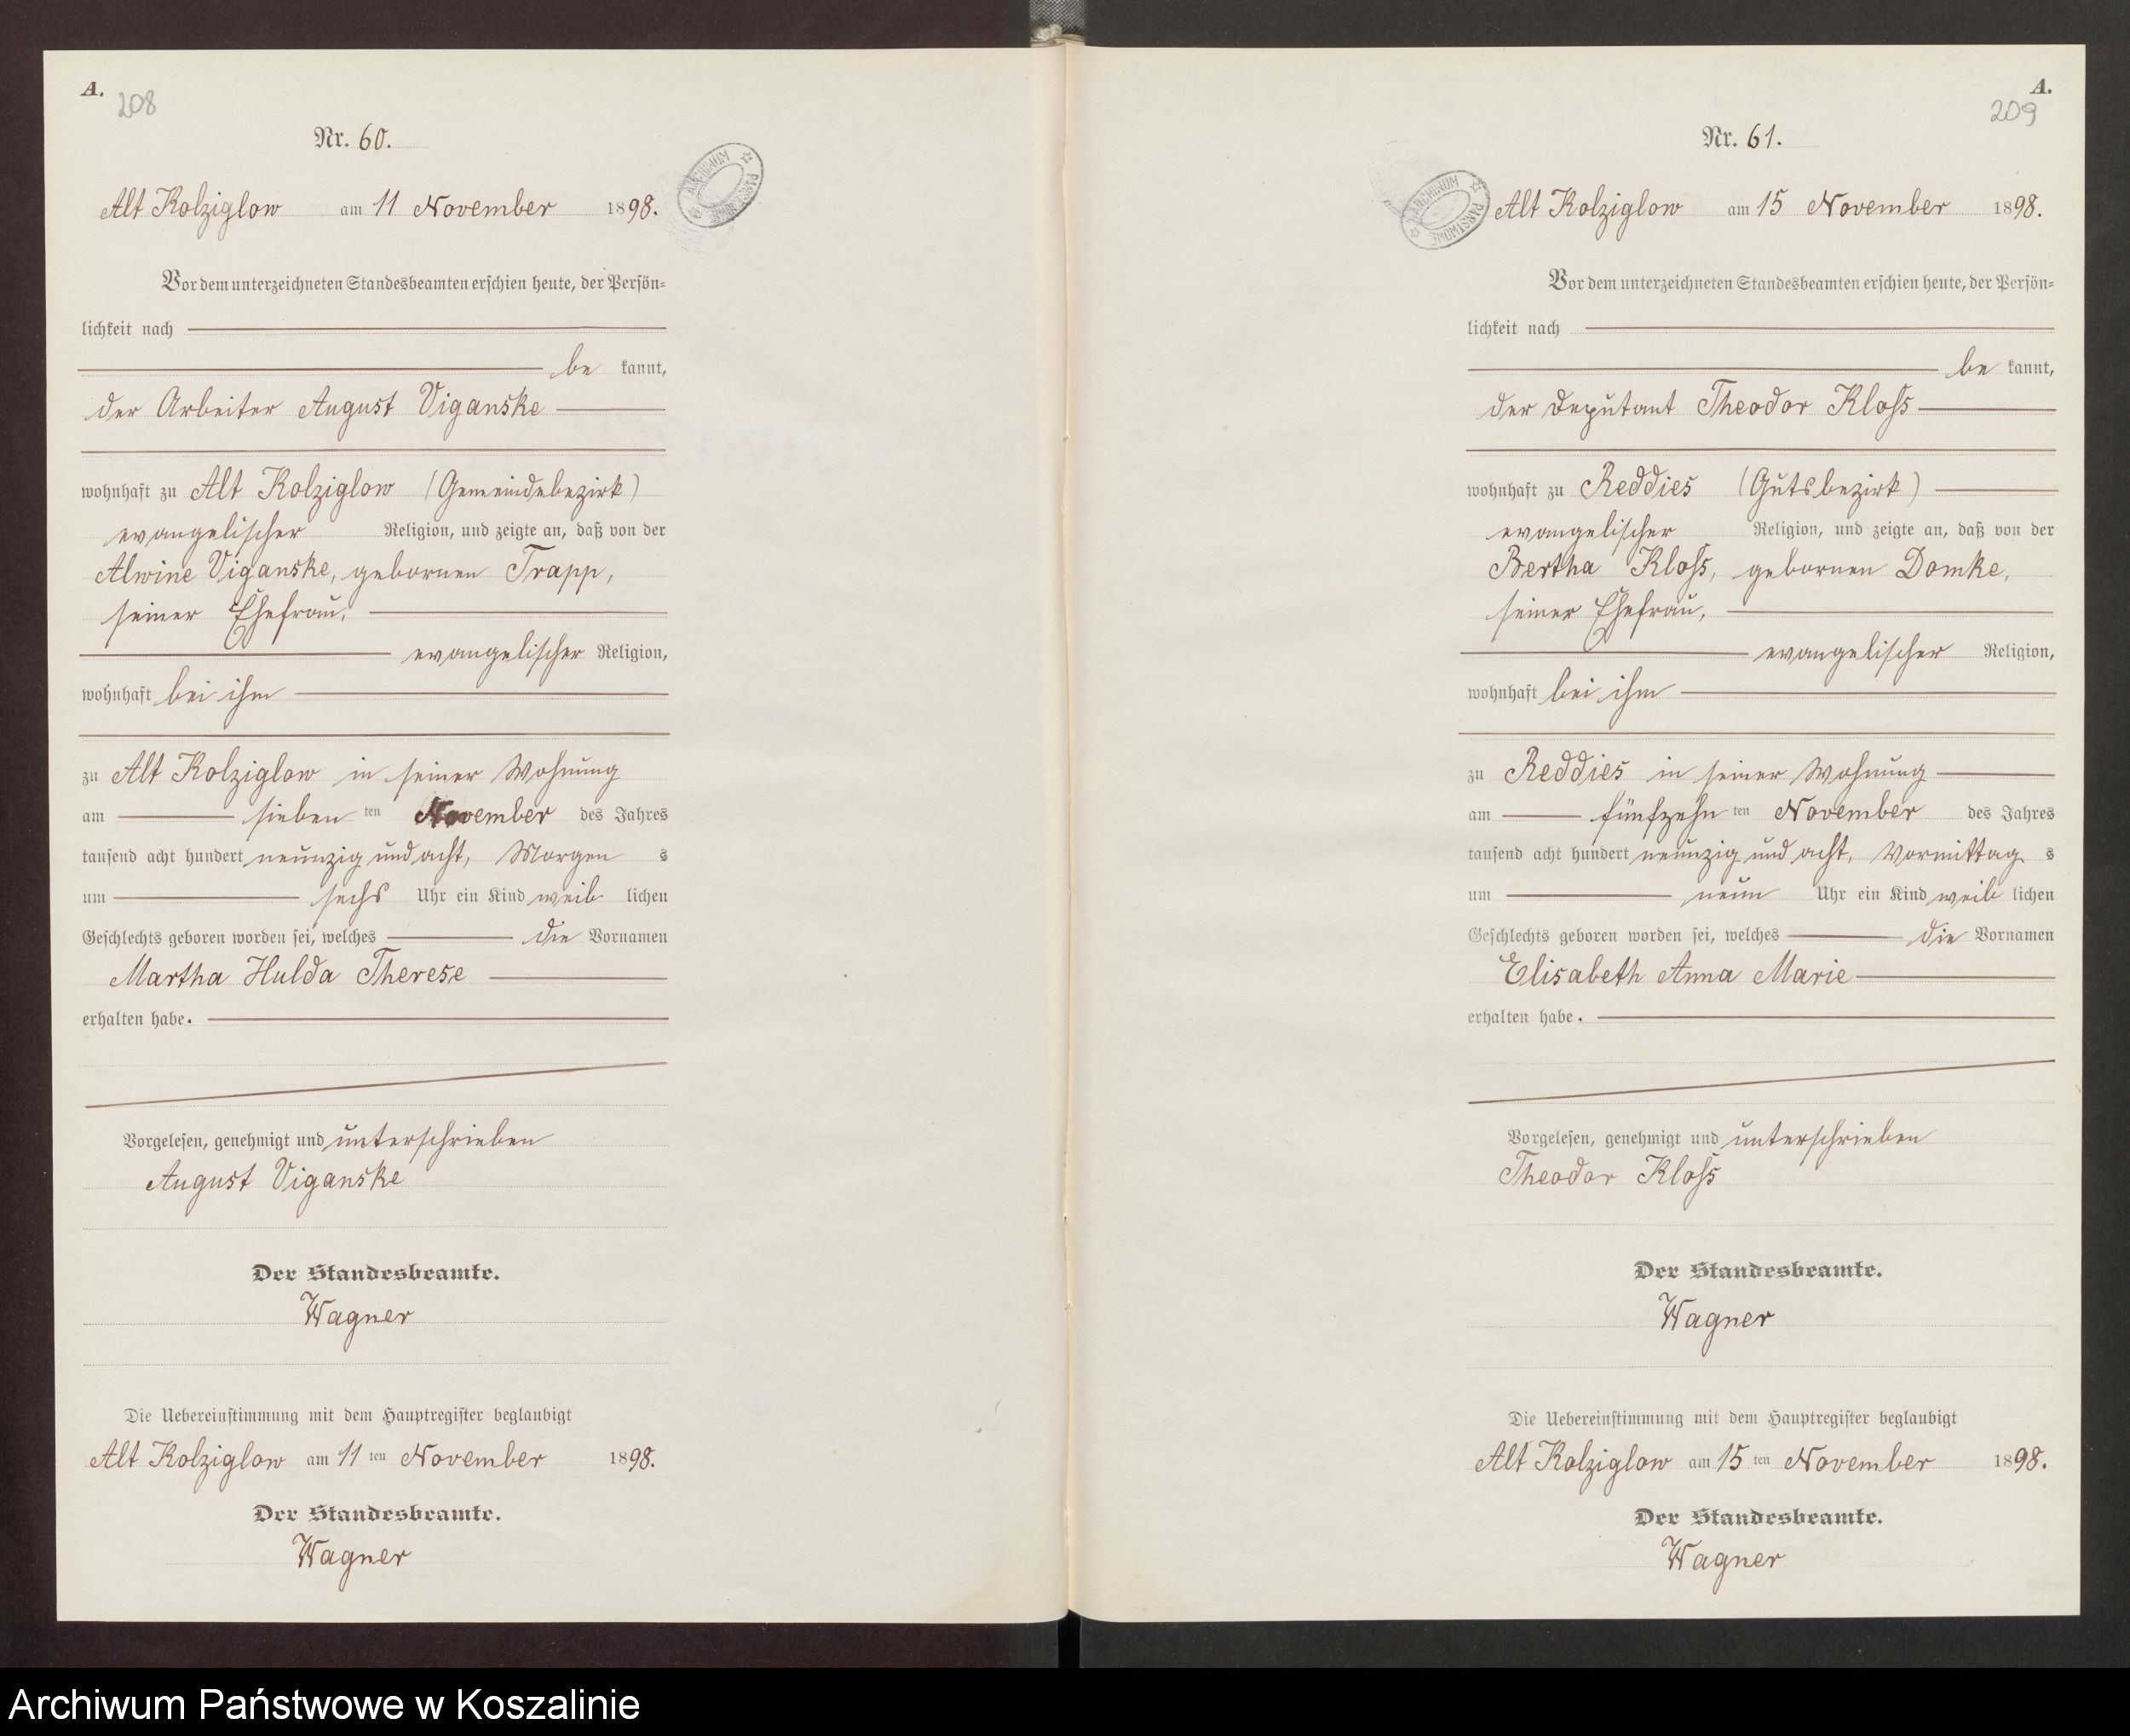 A.
208
Nr. 60.
Alt Kolziglow am 11 November 1898.
Vor dem unterzeichneten Standesbeamten erschien heute, der Persön-
lichkeit nach
be kannt,
der Arbeiter August Viganske
wohnhaft zu Alt Kolziglow (Gemeindebezirk)
evangelischer Religion, und zeigte an, daß von der
Alwine Viganske, gebornen Trapp,
seiner Ehefrau,
evangelischer Religion,
wohnhaft bei ihm
zu Alt Kolziglow in seiner Wohnung
am sieben ten November des Jahres
tausend acht hundert neunzig und acht, Morgen s
um sechs Uhr ein Kind weib lichen
Geschlechts geboren worden sei, welches die Vornamen
Martha Hulda Therese
erhalten habe.
Vorgelesen, genehmigt und unterschrieben
August Viganske
Der Standesbeamte.
Wagner
Die Uebereinstimmung mit dem Hauptregister beglaubigt
Alt Kolziglow am 11 ten November 1898.
Der Standesbeamte.
Wagner
A.
209
Nr. 61.
Alt Kolziglow am 15 November 1898.
Vor dem unterzeichneten Standesbeamten erschien heute, der Persön-
lichkeit nach
be kannt,
der Deputant Theodor Kloß
wohnhaft zu Reddies (Gutsbezirk)
evangelischer Religion, und zeigte an, daß von der
Bertha Kloß, gebornen Domke,
seiner Ehefrau,
evangelischer Religion,
wohnhaft bei ihm
zu Reddies in seiner Wohnung
am fünfzehn ten November des Jahres
tausend acht hundert neunzig und acht, Vormittag s
um neun Uhr ein Kind weib lichen
Geschlechts geboren worden sei, welches die Vornamen
Elisabeth Anna Marie
erhalten habe.
Vorgelesen, genehmigt und unterschrieben
Theodor Kloß
Der Standesbeamte.
Wagner
Die Uebereinstimmung mit dem Hauptregister beglaubigt
Alt Kolziglow am 15 ten November 1898.
Der Standesbeamte.
Wagner
Archiwum Państwowe w Koszalinie